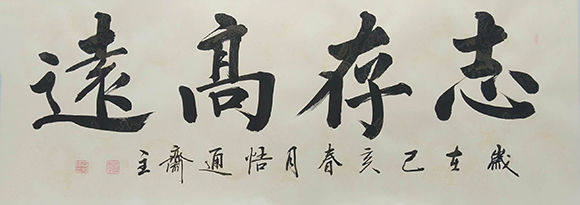 志存高遠
歲在己亥春月悟通齋主